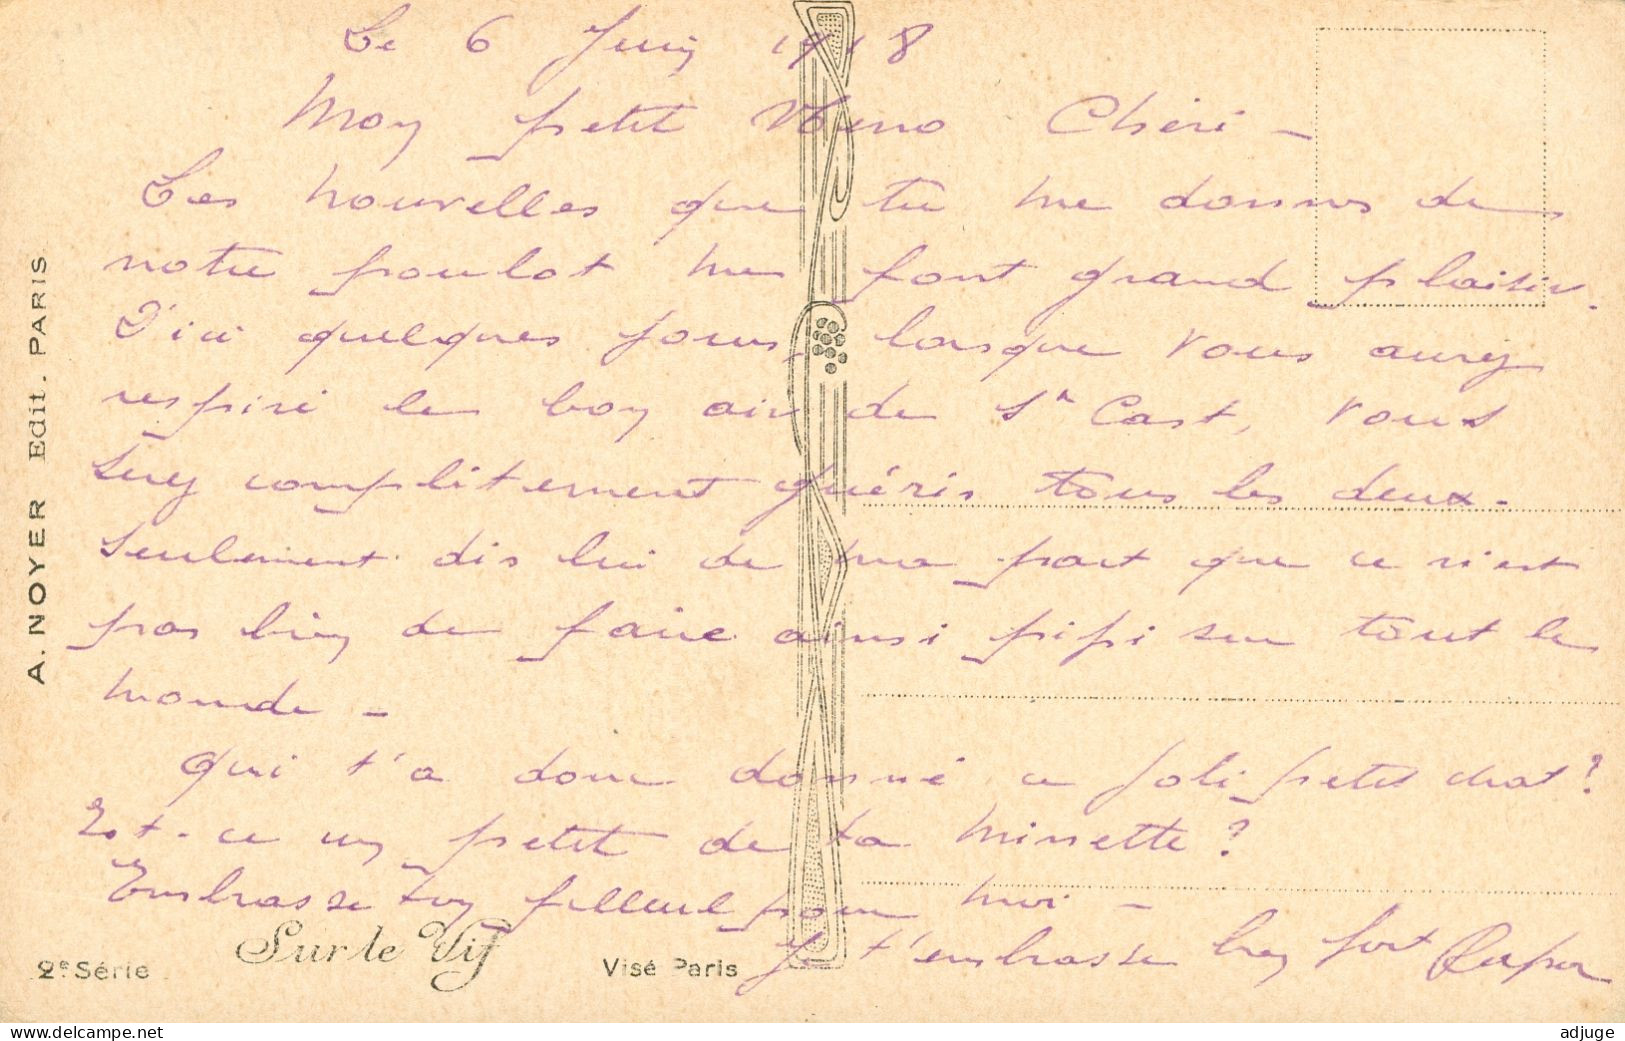 Le 6 Juin 1918
Mon petit Chéri -
Les nouvelles que tu me donnes de
notre poulot me font grand plaisir.
D'ici quelques jours, lorsque vous aurez
respiré le bon air de St Cast, vous
serez complètement guéris tous les deux.
Seulement dis lui de ma part que ce n'est
pas bien de faire ainsi pipi sur tout le
monde -
Qui t'a donc donné ce joli petit chat?
Est-ce un petit de ta minette?
Embrasse ton filleul pour moi -
Je t'embrasse bien fort
A. NOYER Edit. PARIS
2e Série
Sur le Vif
Visé Paris
www.delcampe.net
adjuge